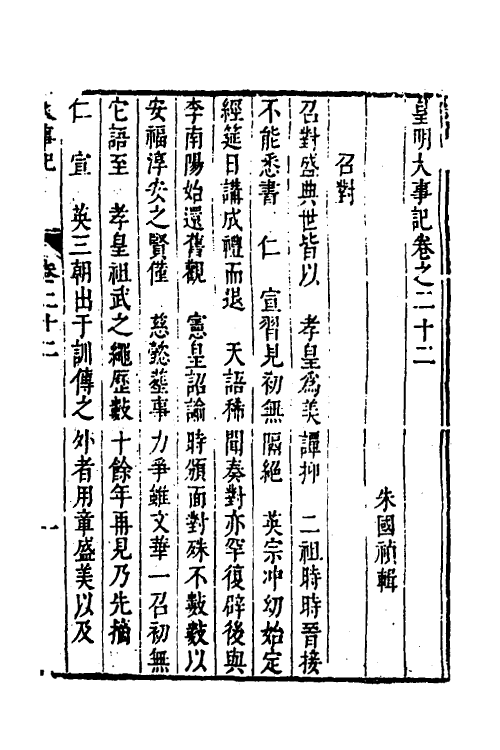 皇明大事記卷之二十二
朱國禎輯
召對
召對盛典世皆以 孝皇爲美譚抑 二祖時時晉接
不能悉書 仁 宣習見初無隔絶 英宗冲幼始定
經筵日講成禮而退 天語稀聞奏對亦罕復辟後與
李南陽始還舊觀 憲皇詔諭時頒面對殊不數數以
安福淳安之賢僅 慈懿葬事力爭雖文華一召初無
它語至 孝皇祖武之繩歷數十餘年再見乃先摘
仁 宣 英三朝出于訓傳之外者用章盛美以及
大事記 卷二十二 一